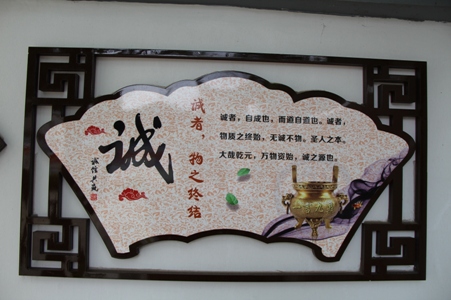 诚
诚信兴商
诚者，物之终结
诚者，自成也，而道自道也。诚者，
物质之终始，无诚不物。圣人之本。
大哉乾元，万物资始，诚之源也。